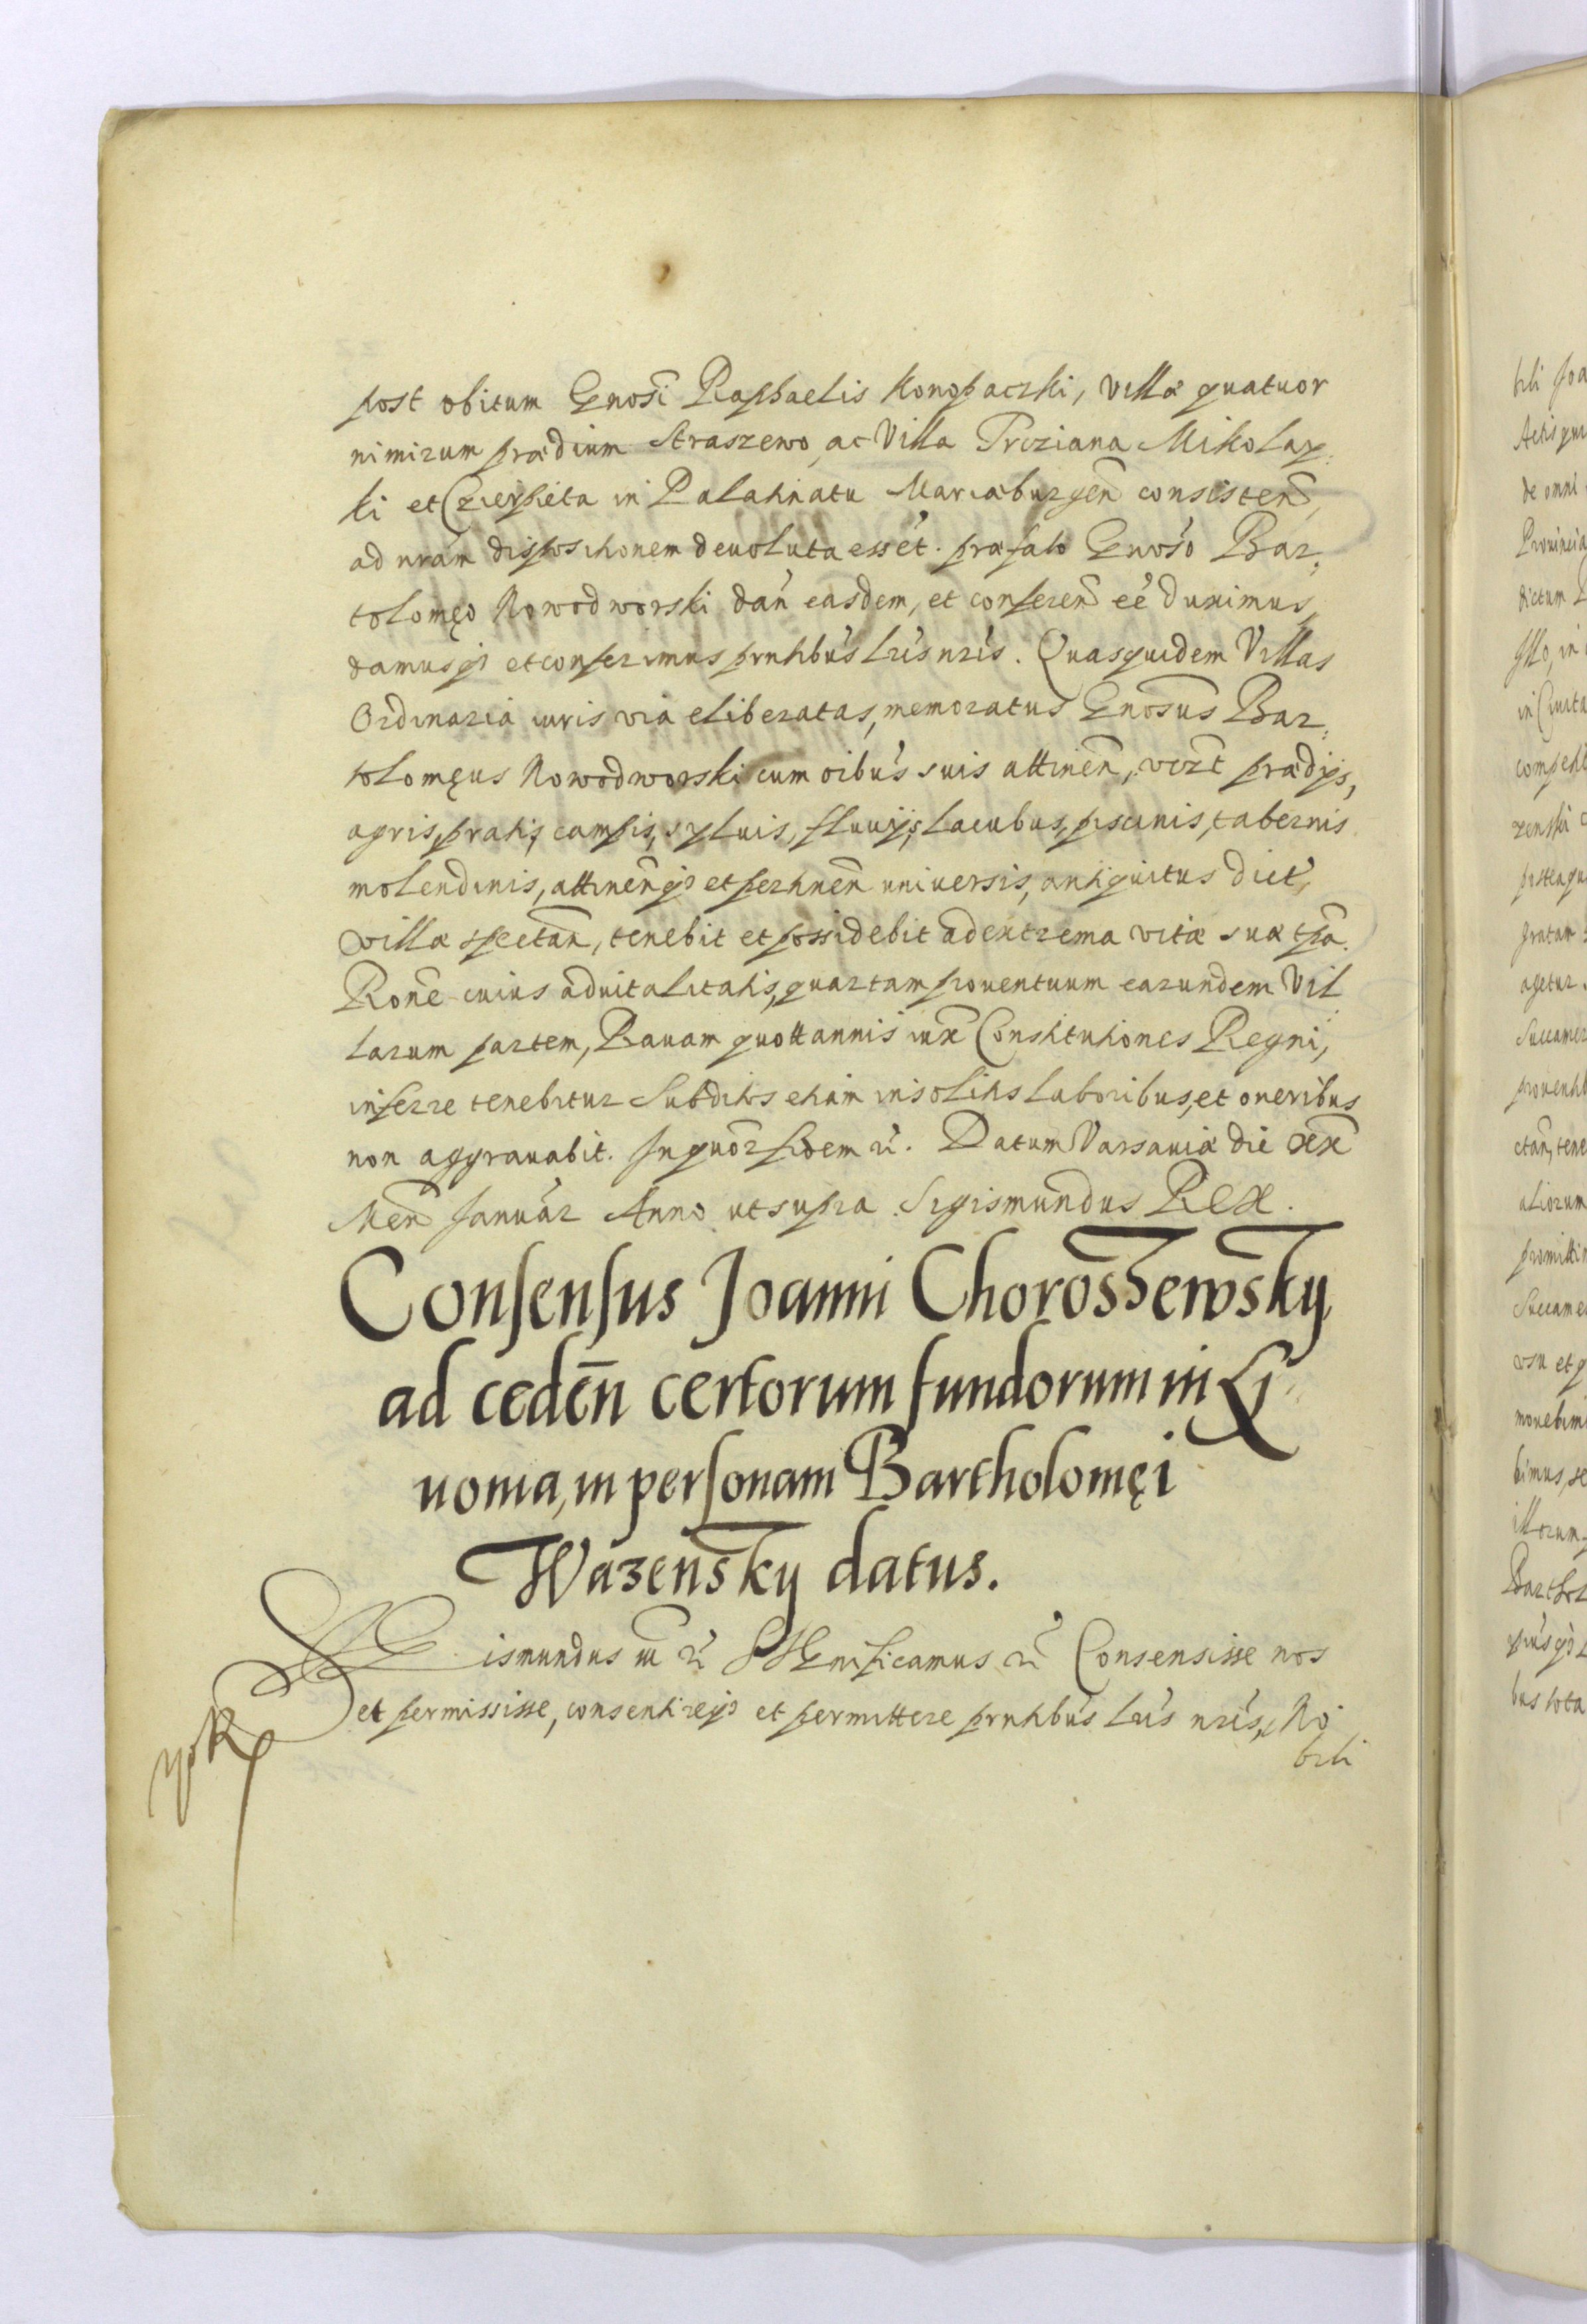 post obitum Gnosi Raphaelis Konopaczki, Villæ quatuor
nimirum prædium Straszewo, ac Villa Trcziana Mikolay,
ki et Czierpieta in Palatinatu Mariæburgen consisten,
ad nram dispositionem devoluta essēt. præfato Gnoso Bar,
tolomęo Nowodworski dan easdem, et conferen eē duximus,
damusqȝ et conferimus pntibus Lris nris. Quasquidem Villas
Ordinaria iuris via eliberatas, memoratus Gnosus Bar,
tolomęus Nowodworski cum oibus suis attinen, vizt prædijs,
agris, pratis, campis, syluis, fluuijs, Lacubus, piscinis, tabernis
molendinis, attinenqȝ et pertinen universis, antiquitus dict,
villæ spectan, tenebit et possidebit ad extrema vitæ suæ tpa.
Rone cuius aduitalitatis, quartam prouentuum earundem Vil
Larum partem, Rauam quottannis iux Constitutiones Regni,
inferre tenebitur Subditos etiam insolitis Laboribus, et oneribus
non aggrauabit. In quor fidem &c. Datum Varsauiæ die xx
Men Januar Anno ut supra Sigismundus Rex.
Consensus Joanni Chorosżewsky,
ad ceden certorum fundorum in Li-
uonia, in personam Bartholomęi
Wazensky datus.
Sigismundus III &c Significamus &c Consensisse nos
et permississe, consentireqȝ et permittere pntibus Lris nris, No
bili
bili Joa
Actis qu
de omni
Prouincia
dictum
Illo, in
in Ciuita
zenski
postea qu
gratam
agetur
Succames
prouenti
ctan, tene
aliorum
promitti
Succame
usu et
mouebim
bimus, se
illorum
Barthol
bus tota